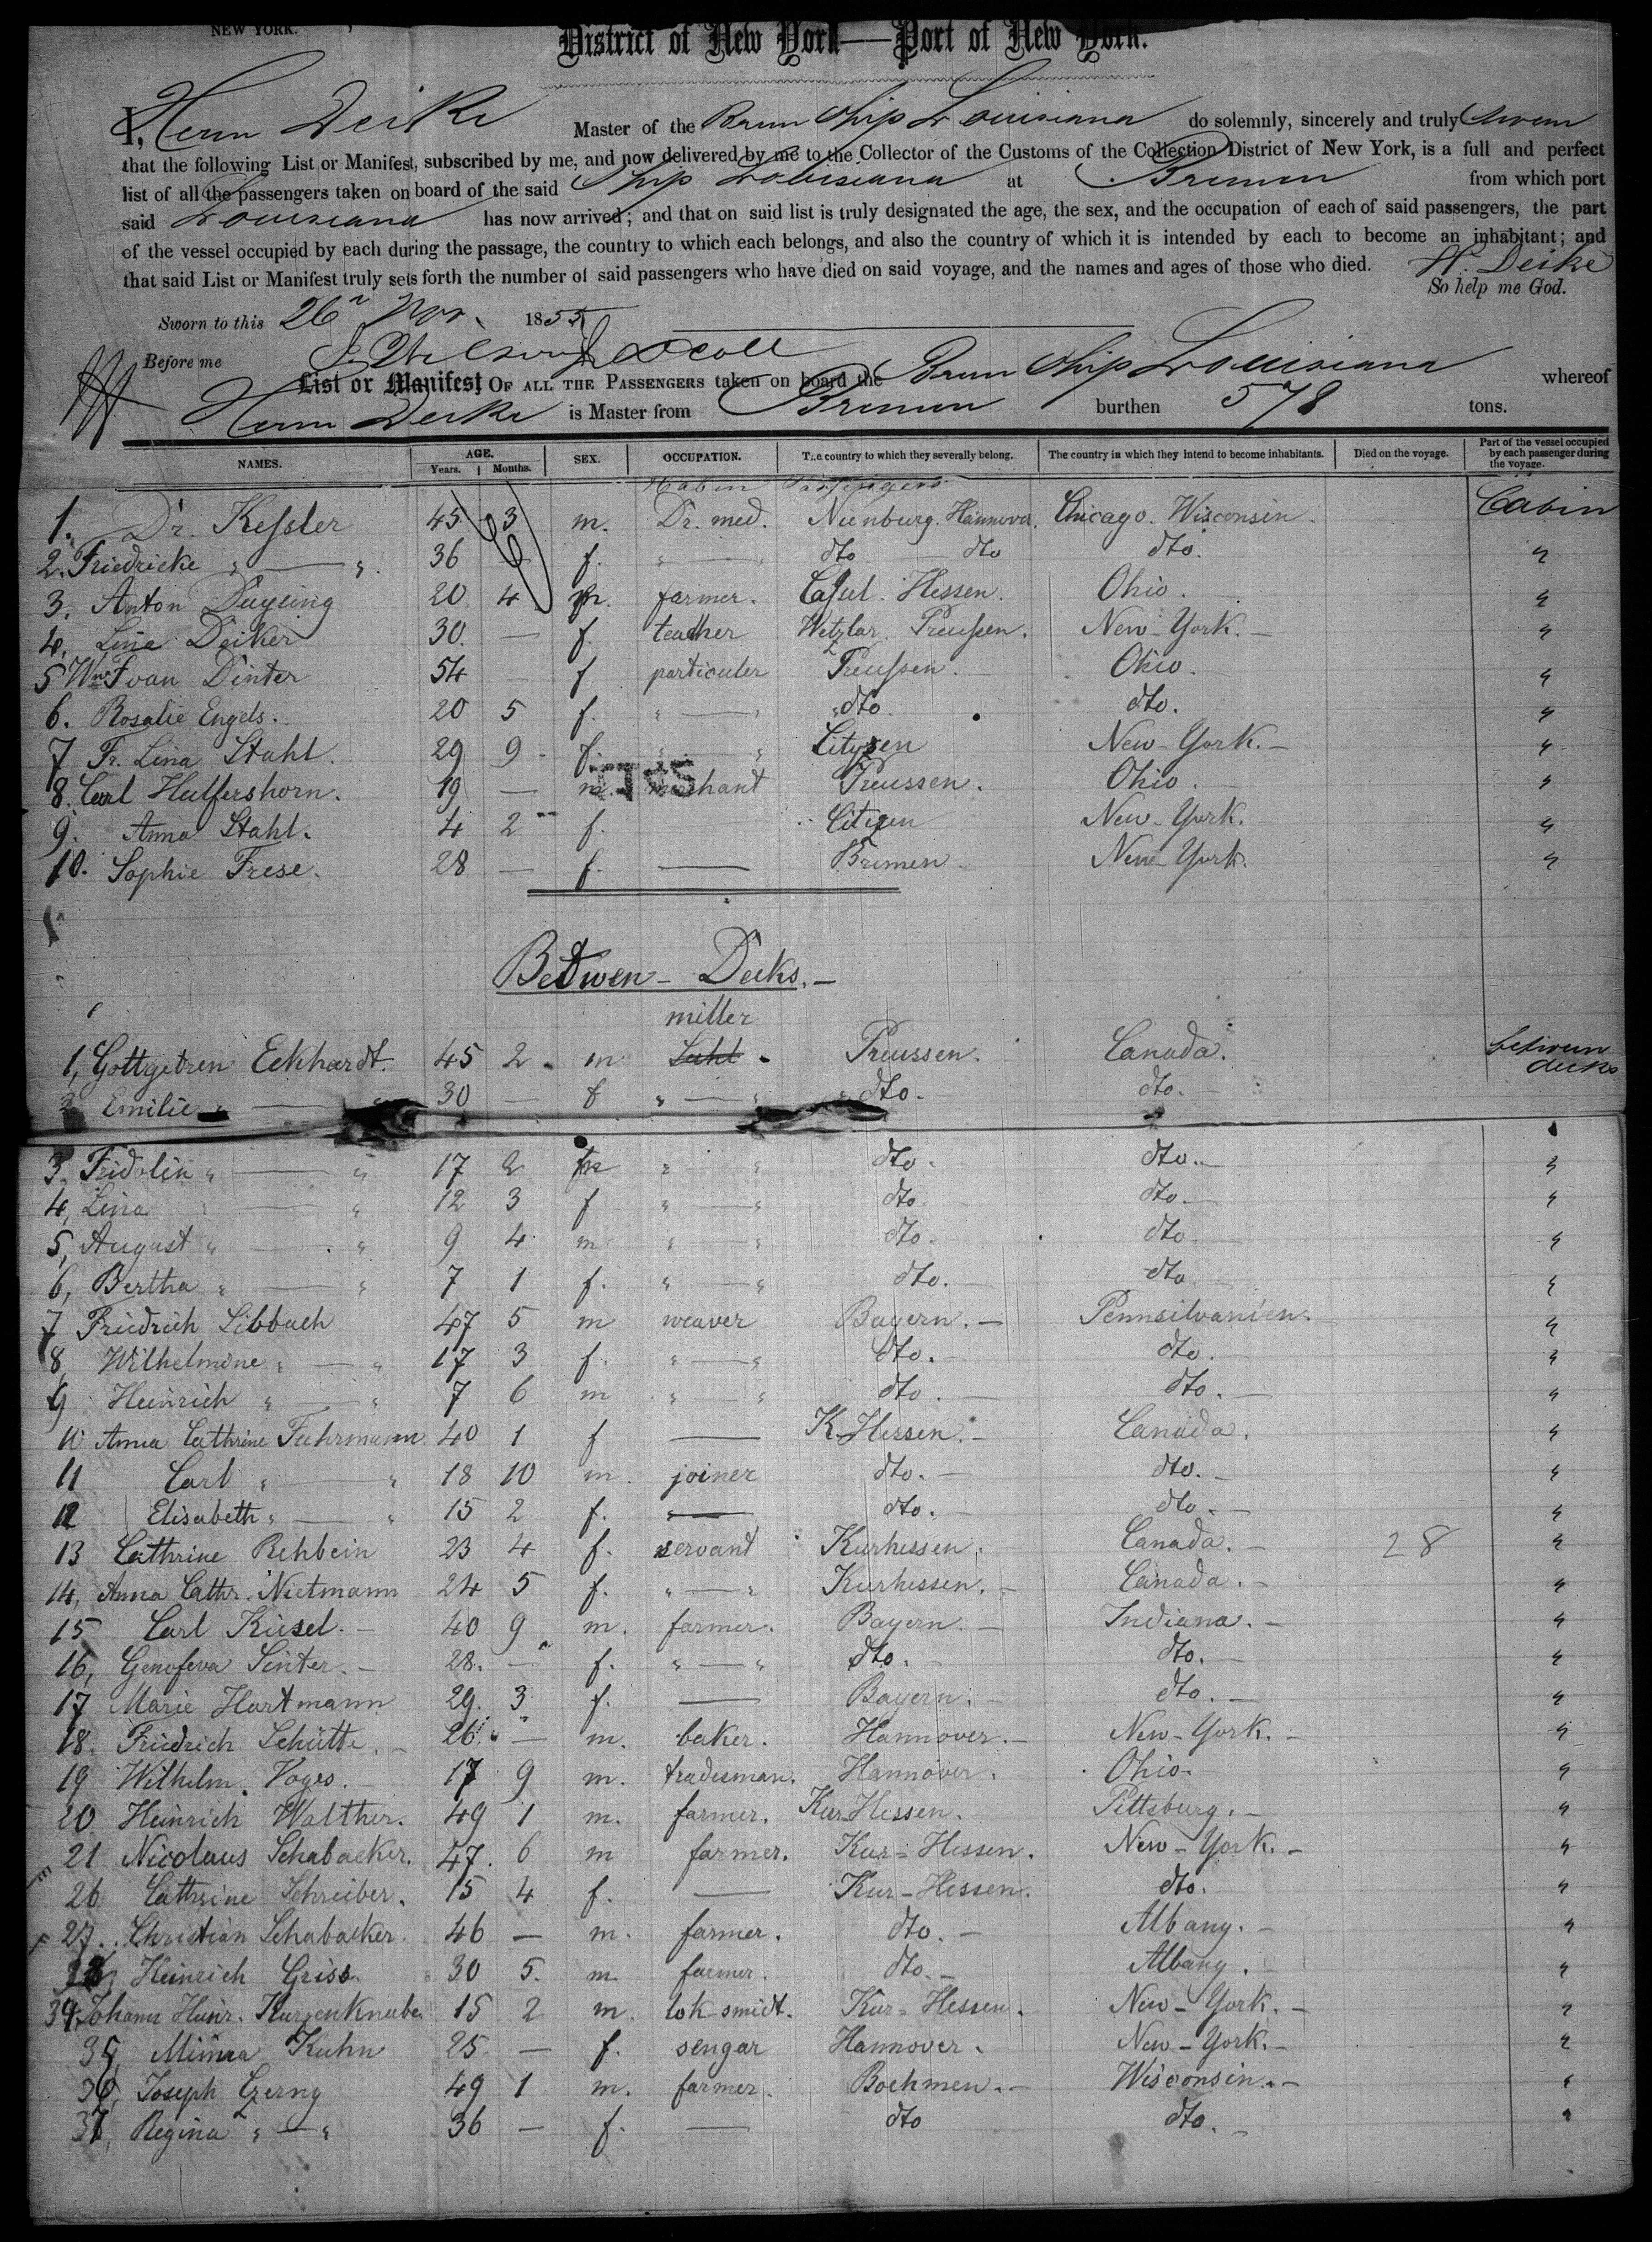 NEW YORK.
District of New York—Port of New York.
I, Herm Deike Master of the Brem Ship Louisiana do solemnly, sincerely and truly swear
that the following List or Manifest, subscribed by me, and now delivered by me to the Collector of the Customs of the Collection District of New York, is a full and perfect
list of all the passengers taken on board of the said Ship Louisiana at Bremen from which port
said Louisiana has now arrived; and that on said list is truly designated the age, the sex, and the occupation of each of said passengers, the part
of the vessel occupied by each during the passage, the country to which each belongs, and also the country of which it is intended by each to become an inhabitant; and
that said List or Manifest truly sets forth the number of said passengers who have died on said voyage, and the names and ages of those who died. H. Deike
So help me God.
Sworn to this 26 Nov. 1855
Before me
List or Manifest OF ALL THE PASSENGERS taken on board the Brem Ship Louisiana whereof
Herm Deike is Master from Bremen burthen 578 tons.
NAMES. AGE. Years. Months. SEX. OCCUPATION. The country to which they severally belong. The country in which they intend to become inhabitants. Died on the voyage. Part of the vessel occupied by each passenger during the voyage.
Cabin Passengers
1. Dr. Kessler 45 3 m. Dr. med. Nienburg. Hannover. Chicago. Wisconsin. Cabin
2. Friedricke " — " 36 6 f. " — " dto — dto dto. "
3. Anton Duysing 20 4 m. farmer. Cassel. Hessen. Ohio. "
4. Lina Deiker 30. — f. teacher Wetzlar. Preussen. New-York. — "
5 Wwe F von Dinter 54 f particuler Preussen. Ohio. "
6. Rosalie Engels. 20 5 f. " — " dto dto. "
7 Fr. Lina Stahl. 29 9 f. " — " Cityzen New-York. — "
8. Carl Hulfershorn. 19 — m. merchant Preussen. Ohio. "
9. Anna Stahl. 4 2 f. Citizen New-York. "
10. Sophie Frese. 28 — f. — Bremen New-York. "
Betwen-Decks.—
miller
1, Gottgetren Eckhardt. 45 2 m Preussen. Canada. between decks
2 Emilie " — " 30 — f " — " dto. dto.
3, Fridolin " — " 17 2 m " — " dto. dto. — "
4, Lina " — " 12 3 f " — " dto. dto. — "
5, August " — " 9 4 m " — " dto. dto "
6, Bertha " — " 7 1 f. " — " dto. dto "
7 Friedrich Libbach 47 5 m weaver Bayern. — Pennsilvanien. "
8, Wilhelmine " — " 17 3 f. " — " dto. dto. "
9 Heinrich " — " 7 6 m " — " dto. — dto. — "
10 Anna Cathrine Fuhrmann 40 1 f — K.Hessen. — Canada. "
11 Carl " — " 18 10 m. joiner dto. — dto. — "
12 Elisabeth " — " 15 2 f. — dto. dto. — "
13 Cathrine Rehbein 23 4 f. servant Kurhessen. Canada. — 28 "
14, Anna Cathr. Nietmann 24 5 f. " — " Kurhessen. — Canada. — "
15 Carl Kiesel. — 40 9 m. farmer. Bayern. — Indiana. — "
16, Genofeva Sinter. — 28. — f. " — " dto. dto. — "
17 Marie Hartmann 29. 3 f. — Bayern. dto. — "
18. Friedrich Schütte. — 26. — m. baker. Hannover. — New-York. — "
19 Wilhelm Voges. — 17 9 m. tradesman. Hannover. Ohio. "
20 Heinrich Walther. 49 1 m. farmer. Kur-Hessen. Pittsburg. — "
21 Nicolaus Schabacker. 47. 6 m farmer. Kur-Hessen. New-York. — "
26 Cathrine Schreiber. 15 4 f. — Kur-Hessen. dto. "
27. Christian Schabacker. 46 — m. farmer. dto. — Albany. — "
Heinrich Griss. 30 5. m. farmer. dto. — Albany. "
34, Johann Heinr. Kurzenknabe 15 2 m. loksmidt. Kur-Hessen. New-York. — "
35, Minna Kuhn 25 — f. sengar Hannover. New-York. — "
36, Joseph Czerny 49 1 m. farmer. Boehmen. — Wisconsin. — "
37, Regina " — " 36 — f. — dto dto. — "